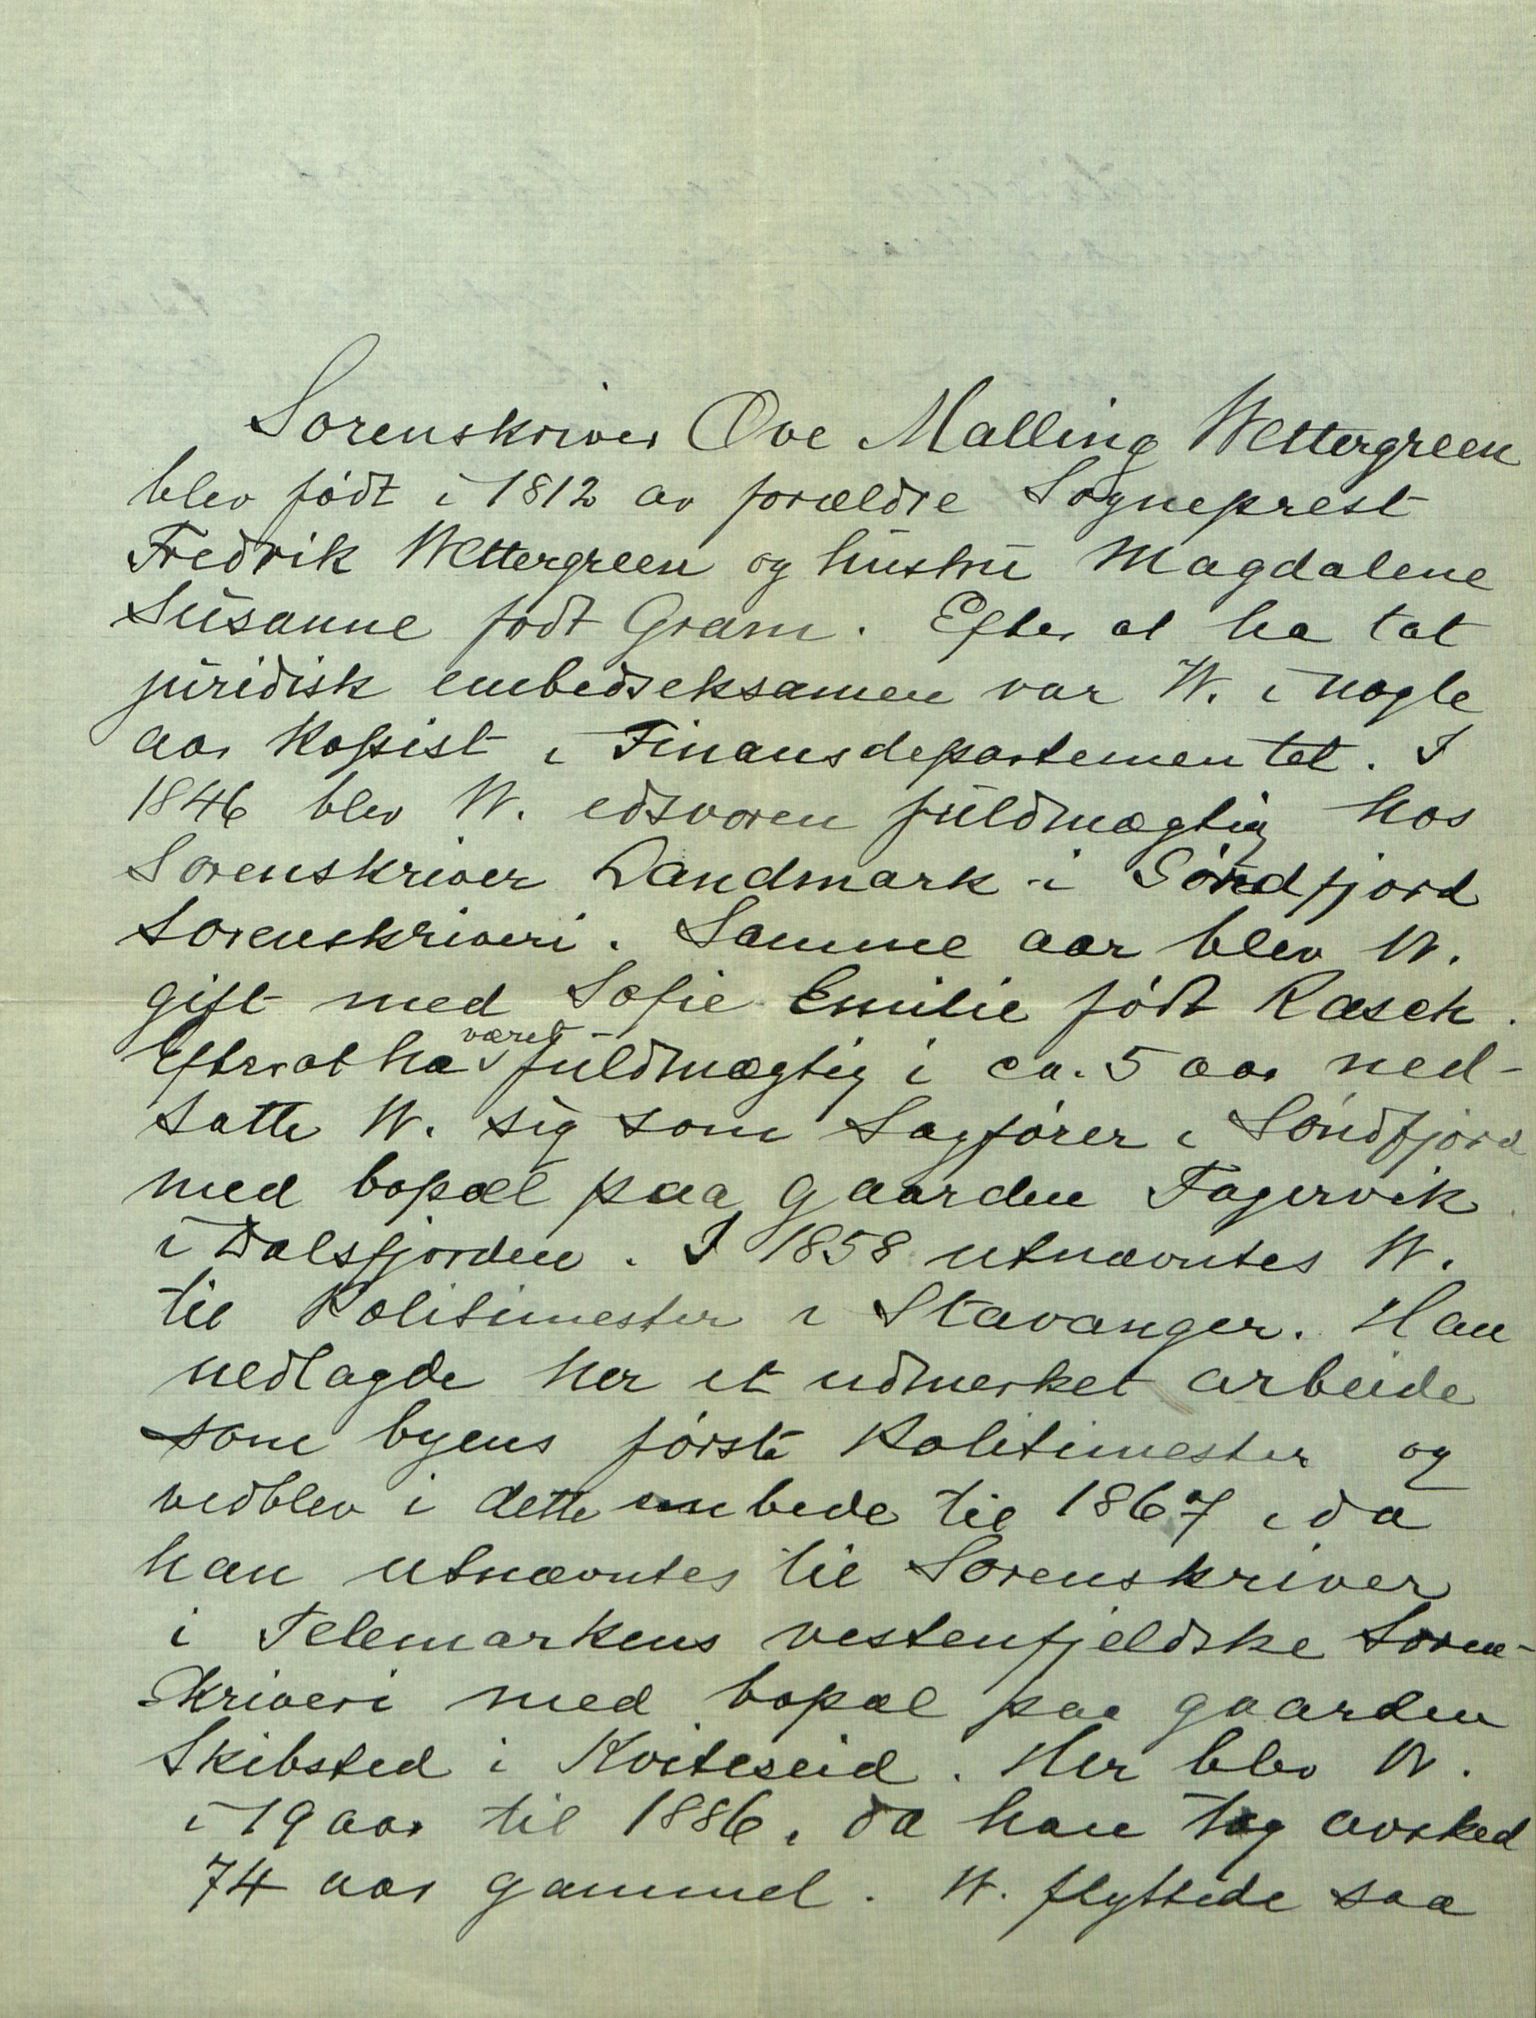 Sorenskriver Ove Malling Wettergreen
blev født i 1812 av forældre Sogneprest
Fredrik Wettergreen og hustru Magdalene
Susanne født Gram. Efter at ha tat
juridisk embedseksamen var W. i nogle
aar Kopist i Finansdepartementet. I
1846 blev W. edsvoren fuldmægtig hos
Sorenskriver Landmark i Søndfjord
Sorenskriveri. Samme aar blev W.
gift med Sofie Emilie født Rasch.
Efter at ha været fuldmægtig i ca. 5 aar ned-
satte W. sig som Sagfører i Søndfjord
med bopæl paa gaarden Fagervik
i Dalsfjorden. I 1858 utnævntes W.
til Politimester i Stavanger. Han
nedlagde her et udmerket arbeide
som byens første Politimester og
vedblev i dette embede til 1867, da
han utnævntes til Sorenskriver
i Telemarkens vestenfjeldske Soren-
skriveri med bopæl paa gaarden
Skibsted i Kviteseid. Her blev W.
i 19 aar til 1886, da han tog avsked
74 aar gammel. W. flyttede saa